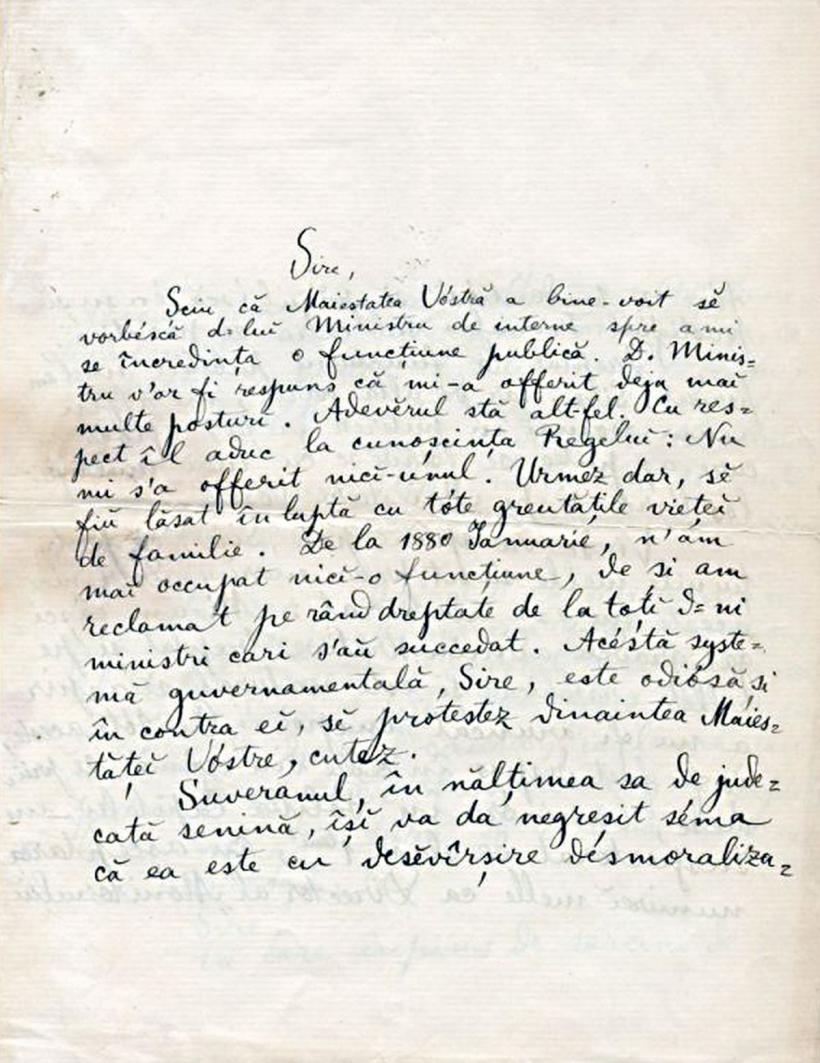 Sire,
Sciu că Maiestatea Vóstră a bine-voit sĕ
vorbéscă d=lui Ministru de interne spre a mi
se încredința o funcțiune publică. D. Minis=
tru v'ar fi respuns că mi-a offerit deja mai
multe posturi. Adevĕrul stă alt-fel. Cu res=
pect îl aduc la cunoscința Regelui: Nu
mi s'a offerit nicĭ-unul. Urmez dar, sĕ
fiŭ lăsat în luptă cu tóte greutățile viețeĭ
de familie. De la 1880 Ianuarie, n'am
mai occupat nicĭ-o funcțiune, de si am
reclamat pe rând dreptate de la toți d=nii
ministri cari s'aŭ succedat. Acéstă syste=
mă guvernamentală, Sire, este odiósă, si
în contra eĭ, sĕ protestez dinaintea Maies=
tățeĭ Vóstre, cutez.
Suveranul, în nălțimea sa de jude=
cată senină, îșĭ va da negresit séma
că ea este cu desĕvîrșire desmoraliza=